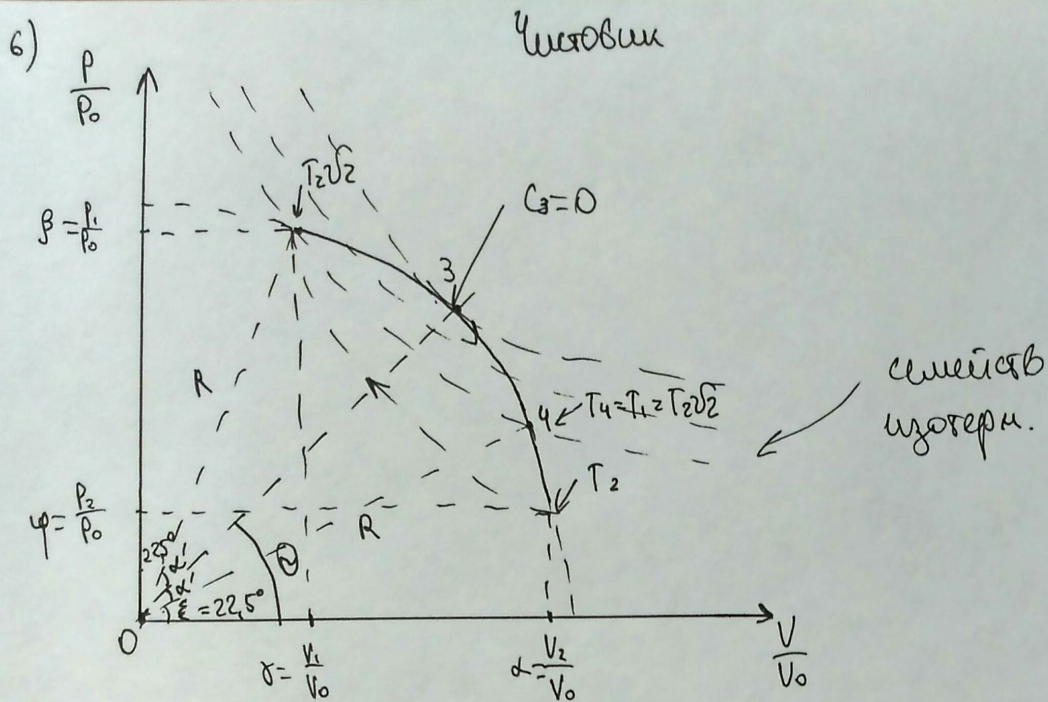 6)
Чистовик
P/P₀
T₂√2
C₃=0
β = P₁/P₀
3
R
4
T₄=T₁=T₂√2
семейств
изотерм.
T₂
φ = P₂/P₀
R
22,5°
α'
α'
ξ = 22,5°
Θ
0
γ = V₁/V₀
α = V₂/V₀
V/V₀